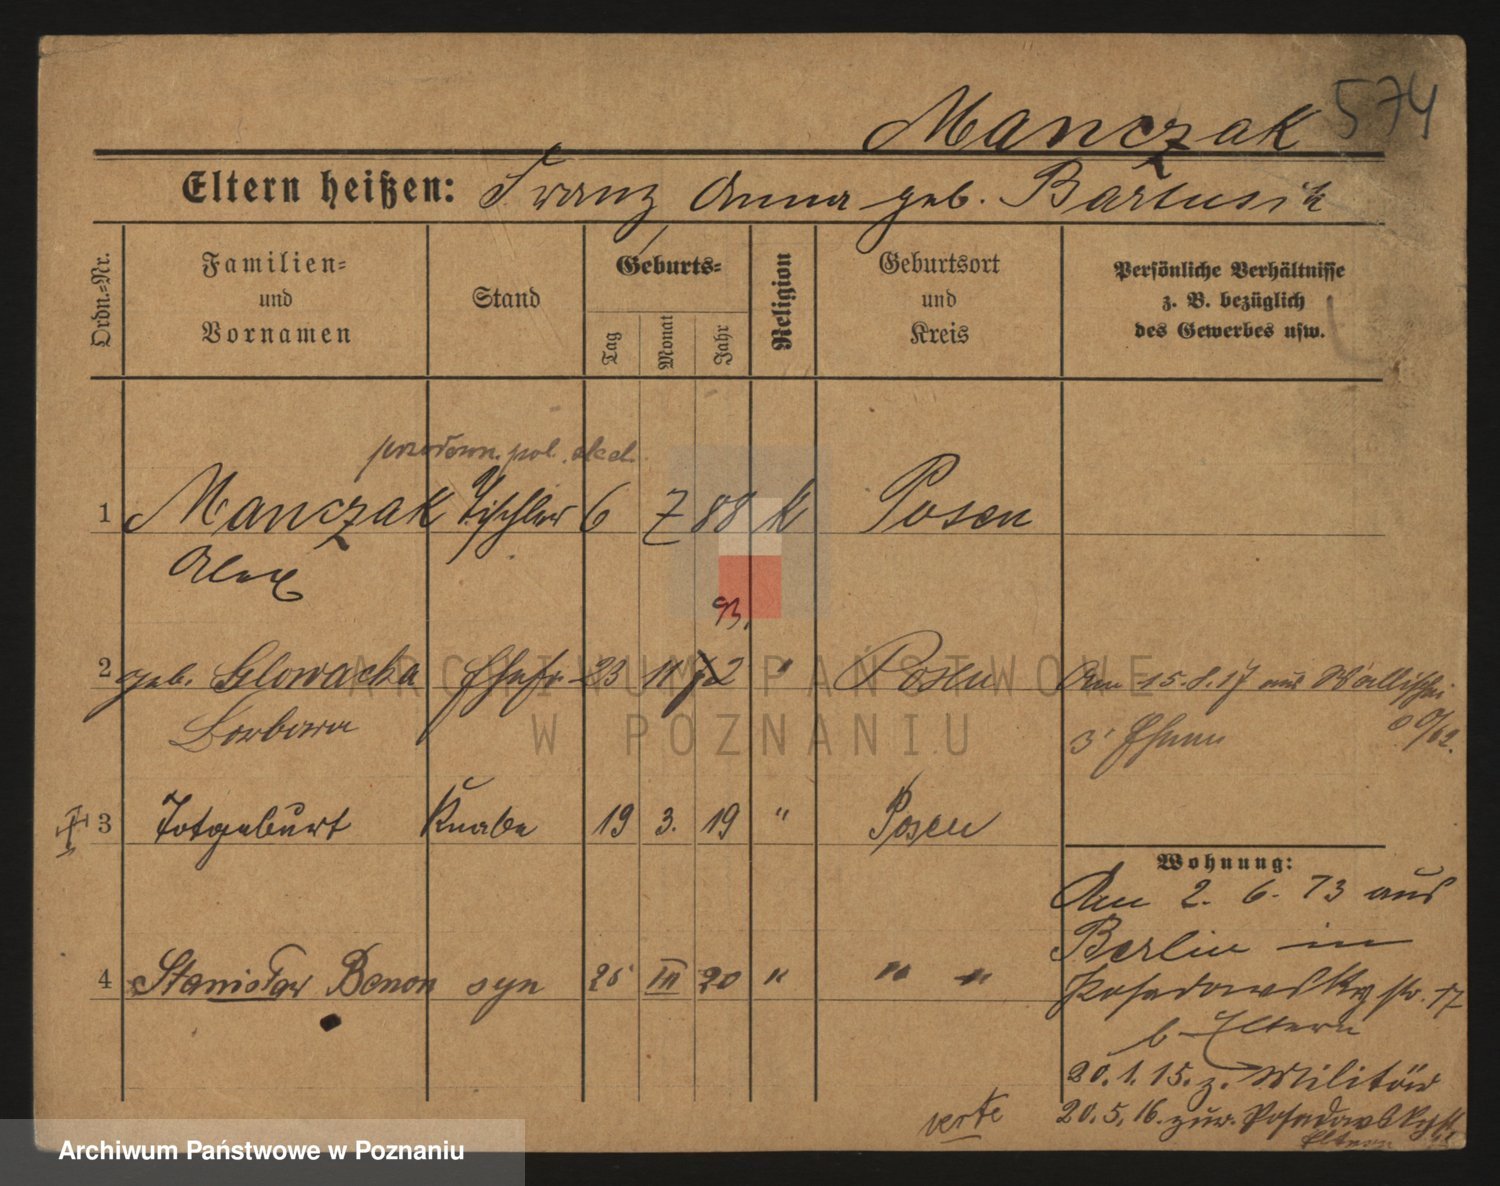 Manczak 574
Eltern heißen: Franz Anna geb. Bartusik
Ordn.-Nr.
Familien=
und
Vornamen
Stand
Geburts=
Tag
Monat
Jahr
Religion
Geburtsort
und
Kreis
Persönliche Verhältnisse
z. B. bezüglich
des Gewerbes usw.
1 Manczak Tischler 6 7 88 K Posen
Alex
93.
2 geb. Glowacka Ehefr. 23 11 92 " Posen Am 15.8.17 aus Wallischei
Barbara
3 Totgeburt Knabe 19 3. 19 " Posen
Wohnung:
Am 2. 6. 13 aus
Berlin in
4 Stanisław Benon syn 25 III 20 " " "
Posadowsky str. 17
b. Eltern
20. 1. 15. z. Militär
20. 5. 16. zur. Posadowskystr.
Eltern
verte
ARCHIWUM PAŃSTWOWE
W POZNANIU
Archiwum Państwowe w Poznaniu